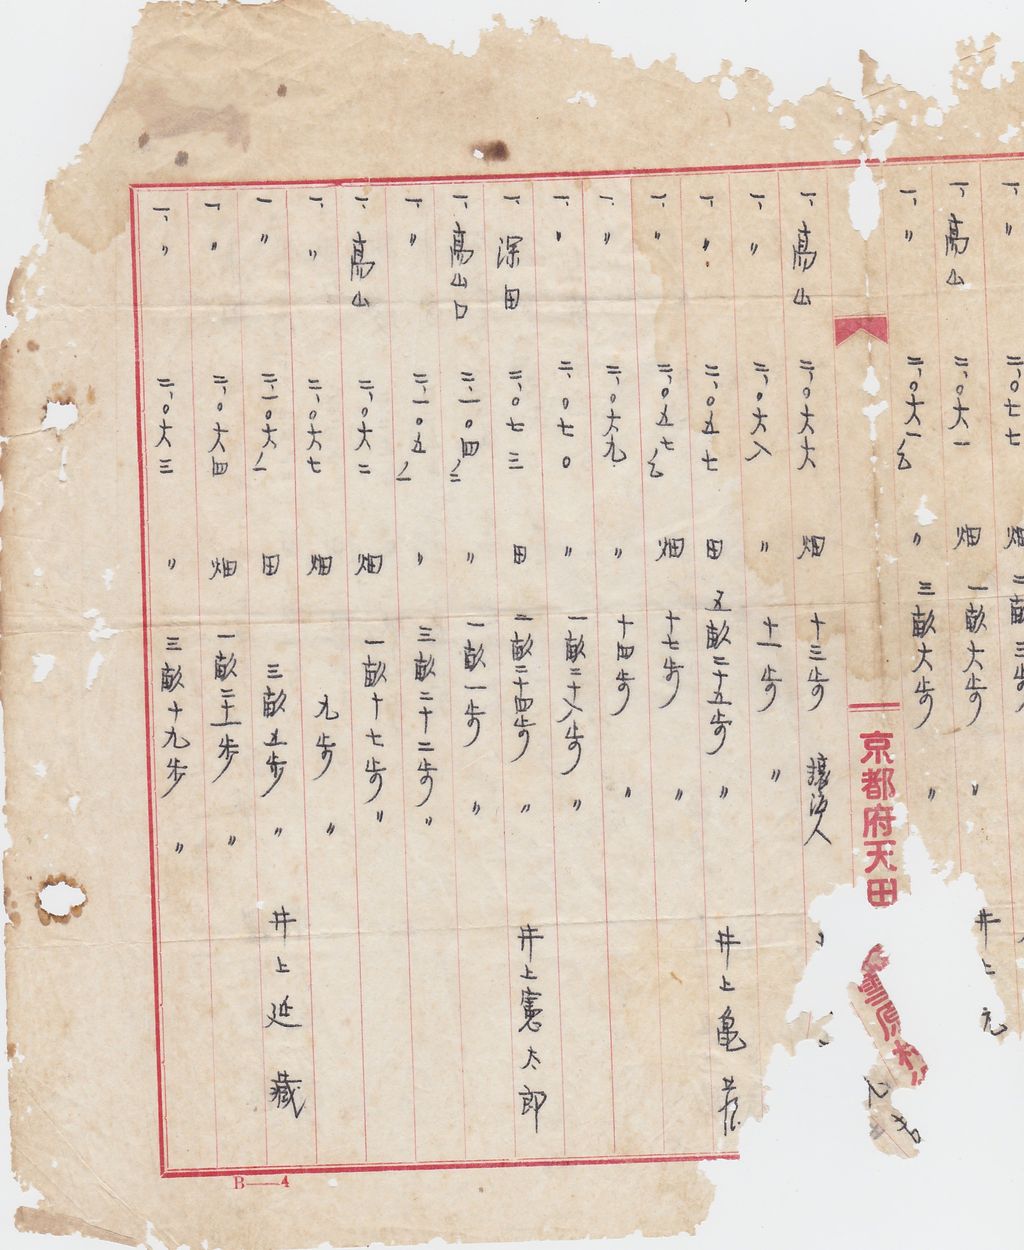 一、〃 二、〇七七 畑 二畝三歩
一、高山 二、〇六一 畑 一畝六歩 〃 井上元
一、〃 二、〇六一ノ乙 〃 三畝六歩 〃
京都府天田 雲原村
一、高山 二、〇六六 畑 十三歩 譲渡人
一、〃 二、〇六八 〃 十一歩 〃
一、〃 二、〇五七 田 五畝二十五歩 〃 井上亀蔵
一、〃 二、〇五七ノ乙 畑 十七歩 〃
一、〃 二、〇六九 〃 十四歩 〃
一、〃 二、〇七〇 〃 一畝二十八歩 〃
一、深田 二、〇七三 田 二畝二十四歩 〃 井上憲太郎
一、高山口 二、一〇四ノ二 〃 一畝一歩 〃
一、〃 二、一〇五ノ一 〃 三畝二十二歩 〃
一、高山 二、〇六二 畑 一畝十七歩 〃
一、〃 二、〇六七 畑 九歩 〃
一 〃 二、一〇六ノ一 田 三畝五歩 〃 井上延藏
一、〃 二、〇六四 畑 一畝二十一歩 〃
一、〃 二、〇六三 〃 三畝十九歩 〃
B—4